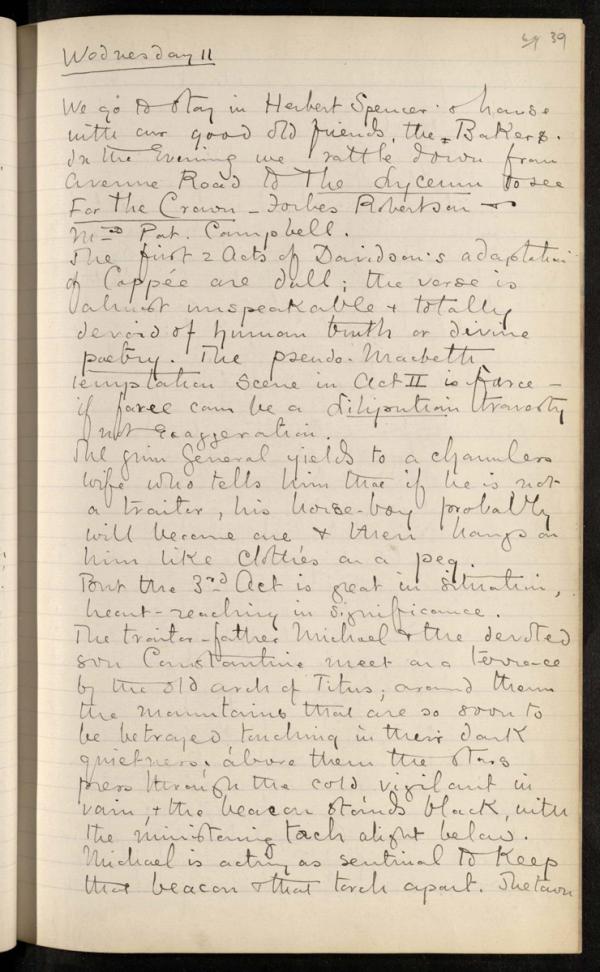 39
Wednesday 11
We go to stay in Herbert Spencer's house
with our good old friends, the Bakers.
In the Evening we rattle down from
Avenue Road to The Lyceum to see
For the Crown – Forbes Robertson &
Mrs Pat. Campbell.
The first 2 Acts of Davidson's adaptation
of Coppée are dull; the verse is
almost unspeakable & totally
devoid of human truth or divine
poetry. The pseudo-Macbeth
temptation scene in Act II is farce –
if farce can be a Liliputian travesty
& not Exaggeration.
The grim General yields to a charmless
wife who tells him that if he is not
a traitor, his horse-boy probably
will become one & then hangs on
him like clothes on a peg.
But the 3rd Act is great in situation,
heart-reaching in significance.
The traitor-father Michael & the devoted
son Constantine meet on a terrace
by the old arch of Titus; around them
the mountains that are so soon to
be betrayed, touching in their dark
quietness; above them the stars
press through the cold, vigilant in
vain, & the beacon stands black, with
the ministering torch alight below.
Michael is acting as sentinal to keep
that beacon & that torch apart. The town